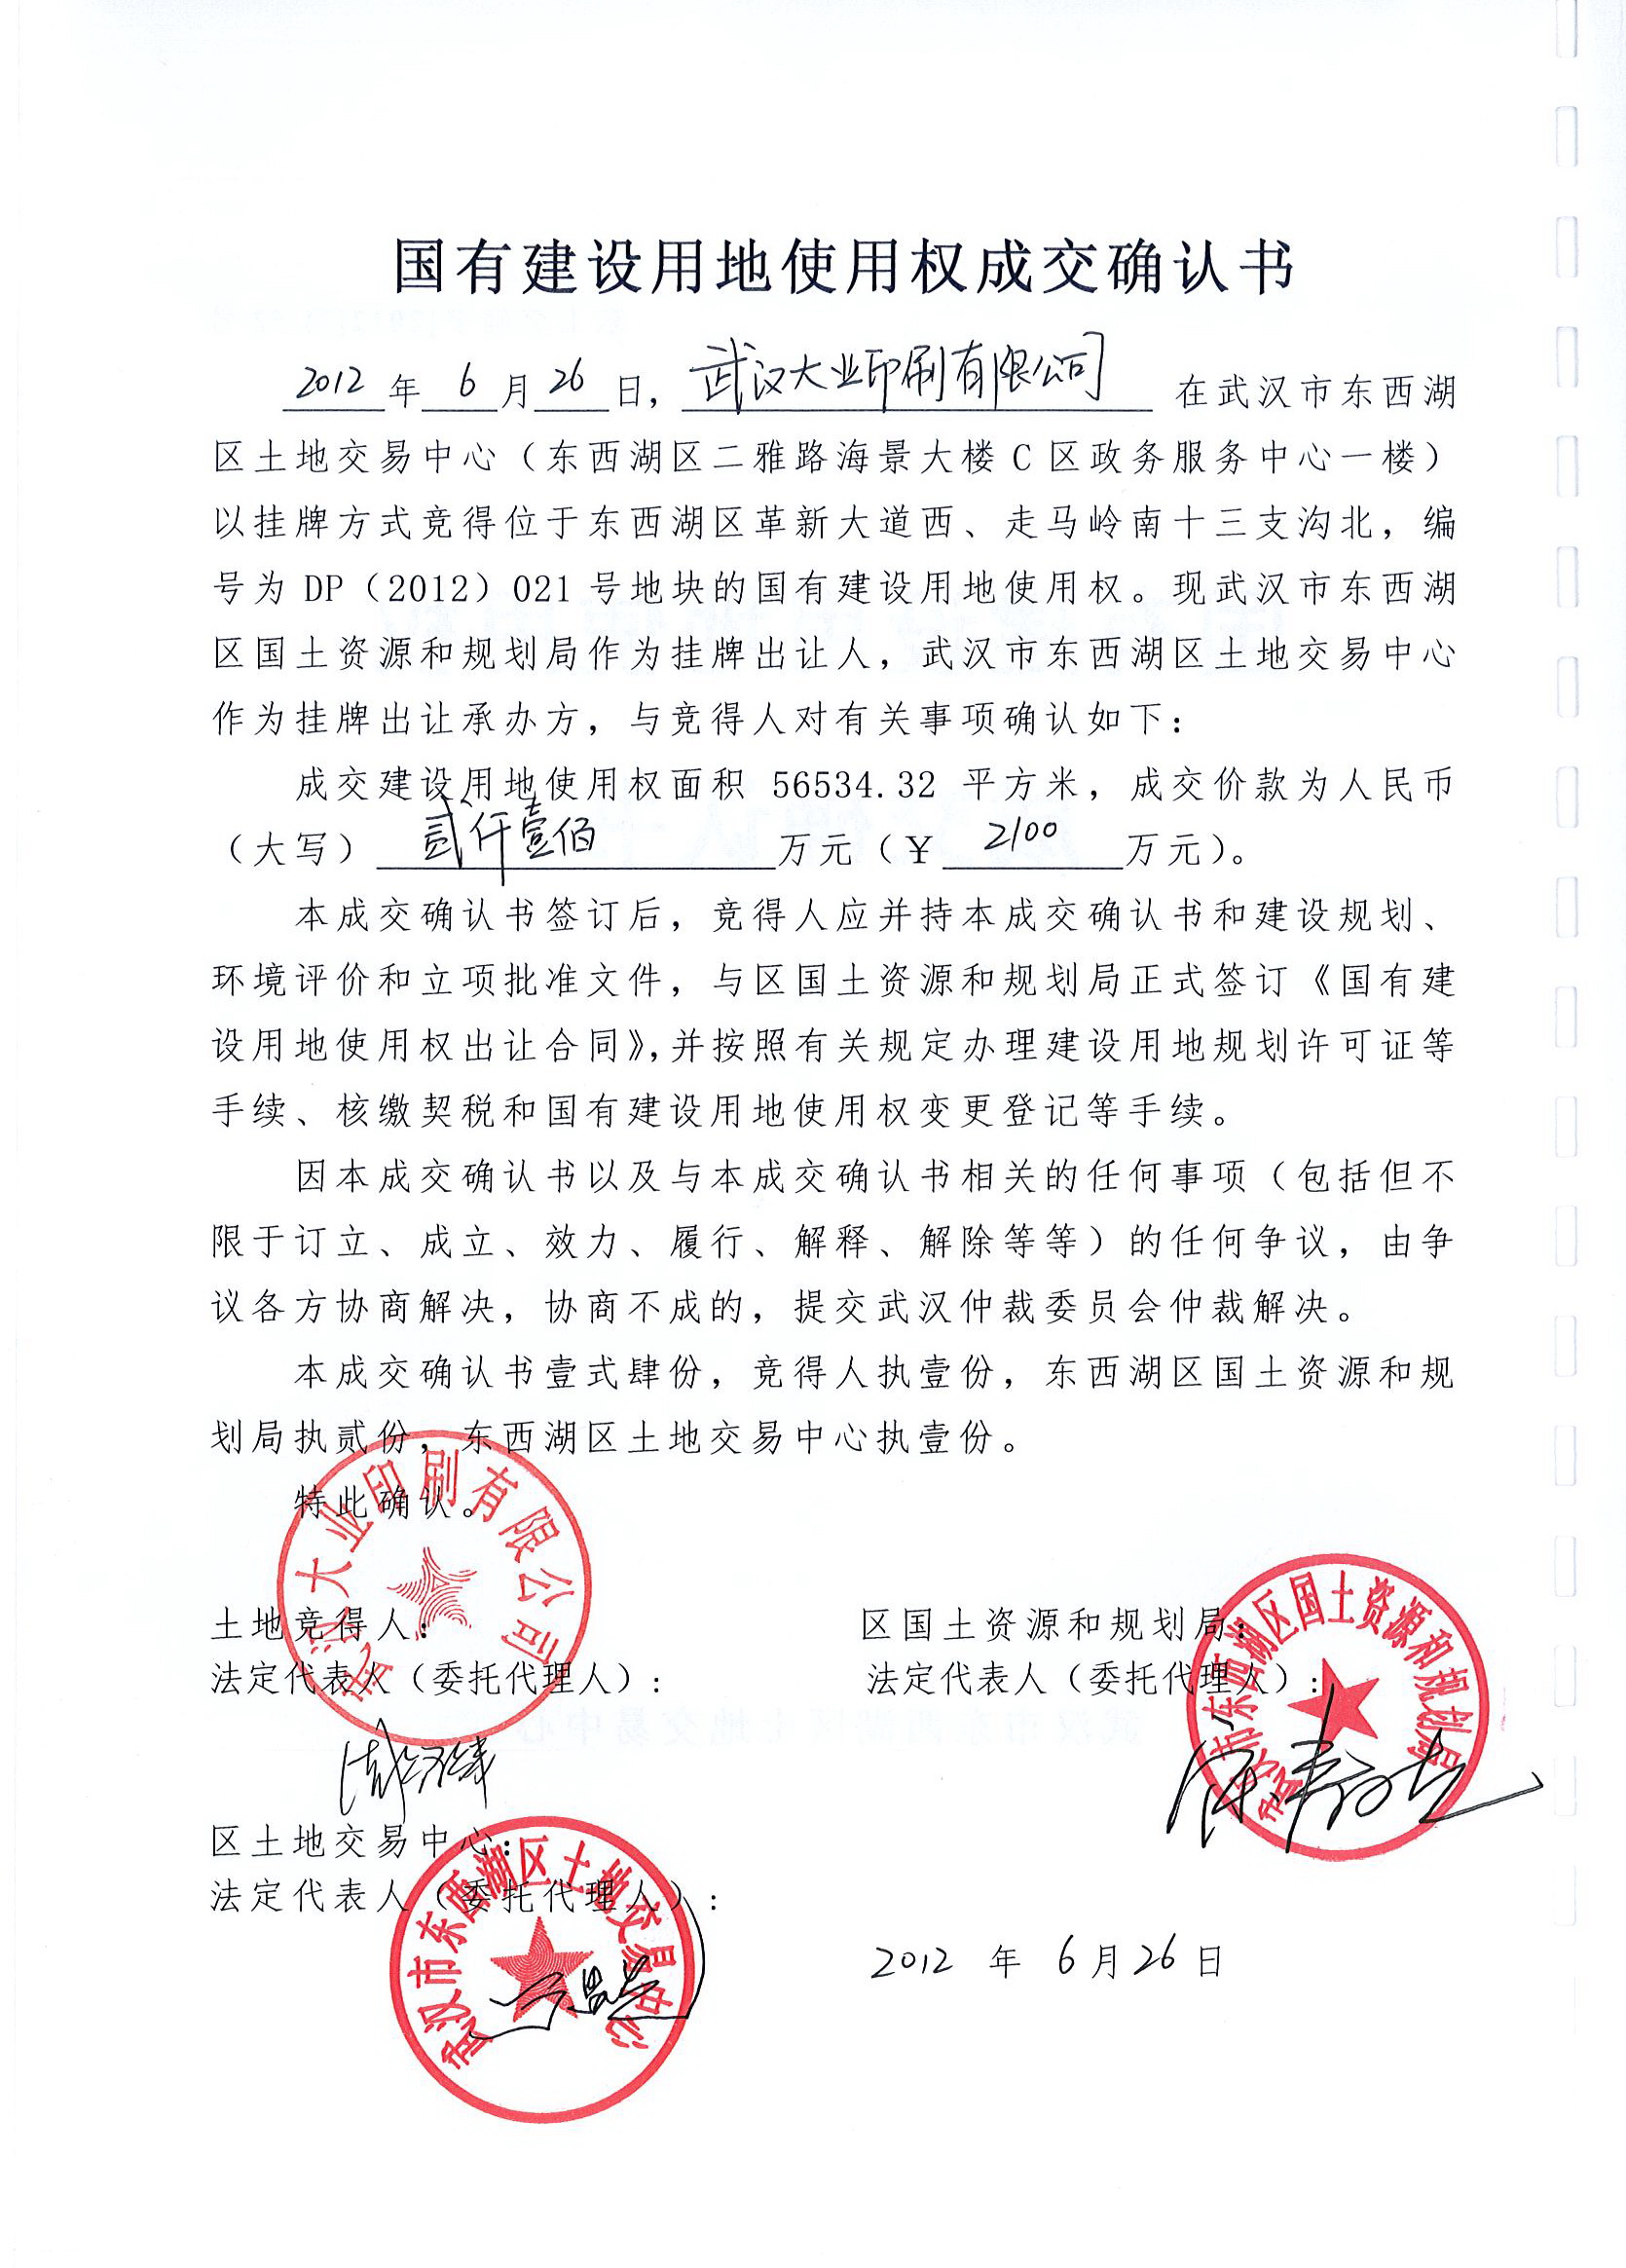 国有建设用地使用权成交确认书
2012年6月26日，武汉大业印刷有限公司在武汉市东西湖
区土地交易中心（东西湖区二雅路海景大楼C区政务服务中心一楼）
以挂牌方式竞得位于东西湖区革新大道西、走马岭南十三支沟北，编
号为DP（2012）021号地块的国有建设用地使用权。现武汉市东西湖
区国土资源和规划局作为挂牌出让人，武汉市东西湖区土地交易中心
作为挂牌出让承办方，与竞得人对有关事项确认如下：
成交建设用地使用权面积 56534.32 平方米，成交价款为人民币
（大写）贰仟壹佰万元（￥2100万元）。
本成交确认书签订后，竞得人应并持本成交确认书和建设规划、
环境评价和立项批准文件，与区国土资源和规划局正式签订《国有建
设用地使用权出让合同》，并按照有关规定办理建设用地规划许可证等
手续、核缴契税和国有建设用地使用权变更登记等手续。
因本成交确认书以及与本成交确认书相关的任何事项（包括但不
限于订立、成立、效力、履行、解释、解除等等）的任何争议，由争
议各方协商解决，协商不成的，提交武汉仲裁委员会仲裁解决。
本成交确认书壹式肆份，竞得人执壹份，东西湖区国土资源和规
划局执贰份，东西湖区土地交易中心执壹份。
特此确认。
武汉大业印刷有限公司
土地竞得人：
法定代表人（委托代理人）：
区国土资源和规划局：
法定代表人（委托代理人）：
武汉市东西湖区国土资源和规划局
区土地交易中心：
法定代表人（委托代理人）：
武汉市东西湖区土地交易中心
2012年6月26日